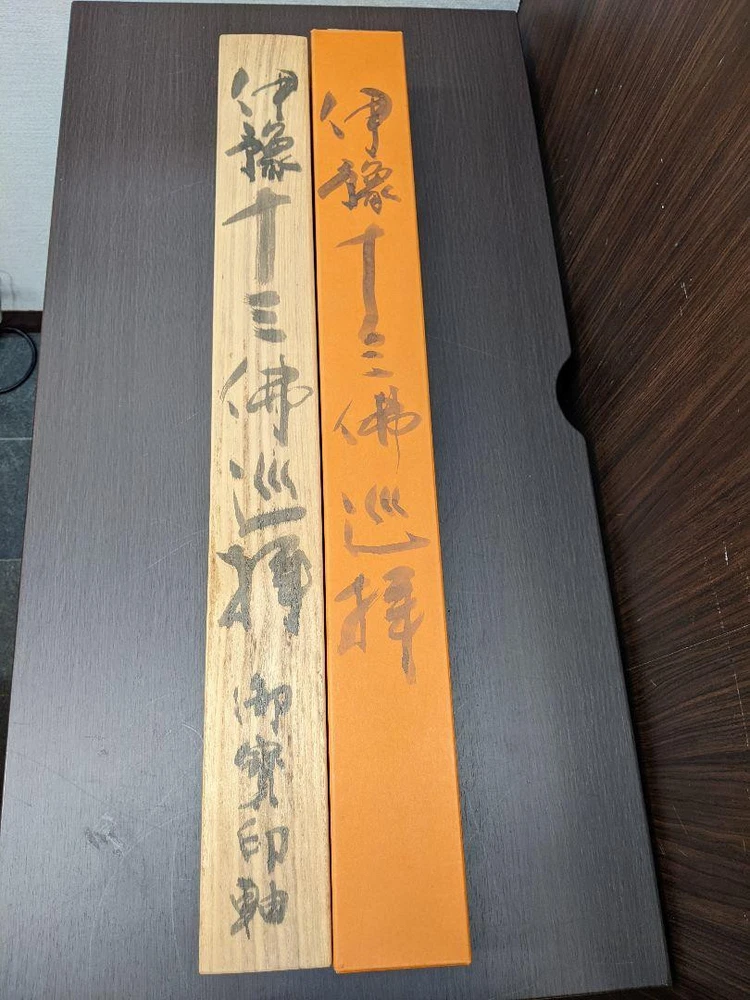 伊豫十三佛巡拝
伊豫十三佛巡拝 御寶印軸